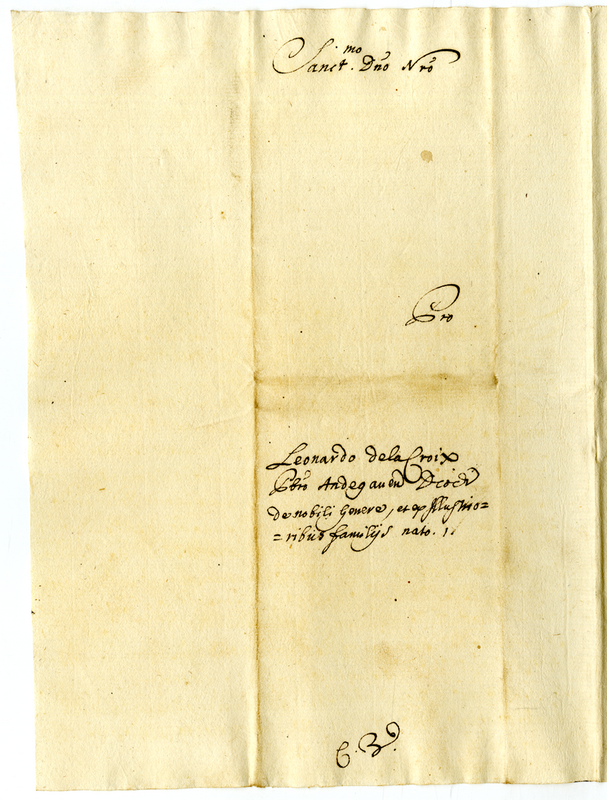 Sanct.mo Dño Nr̃o
Pro
Leonardo dela Croix
Pbr̃o Andegaven Dioeĉ
de nobili genere, et ex Illustrio=
=ribus familijs nato. //